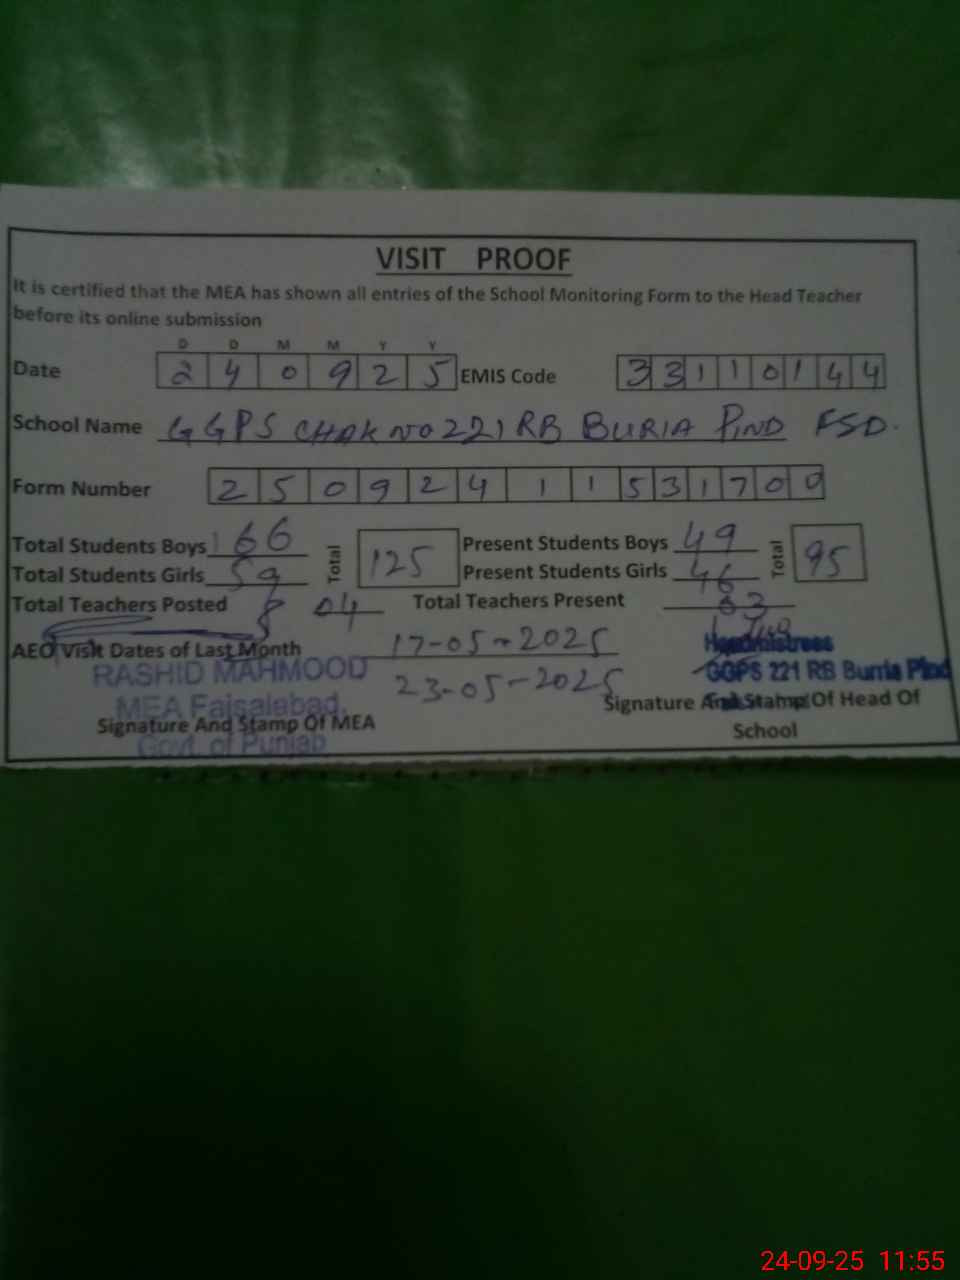 VISIT PROOF
It is certified that the MEA has shown all entries of the School Monitoring Form to the Head Teacher
before its online submission
D D M M Y Y
Date 2 4 0 9 2 5 EMIS Code 3 3 1 1 0 1 4 4
School Name GGPS CHAK NO 221 RB BURIA PIND FSD.
Form Number 2 5 0 9 2 4 1 1 5 3 1 7 0 0
Total Students Boys 66 Total 125 Present Students Boys 49 Total 95
Total Students Girls 59 Present Students Girls 46
Total Teachers Posted 04 Total Teachers Present 03
AEO Visit Dates of Last Month 17-05-2025
23-05-2025
RASHID MAHMOOD
MEA Faisalabad.
Govt. of Punjab
Signature And Stamp Of MEA
Headmistress
GGPS 221 RB Burria Pind
Signature And Stamp Of Head Of
School
24-09-25 11:55